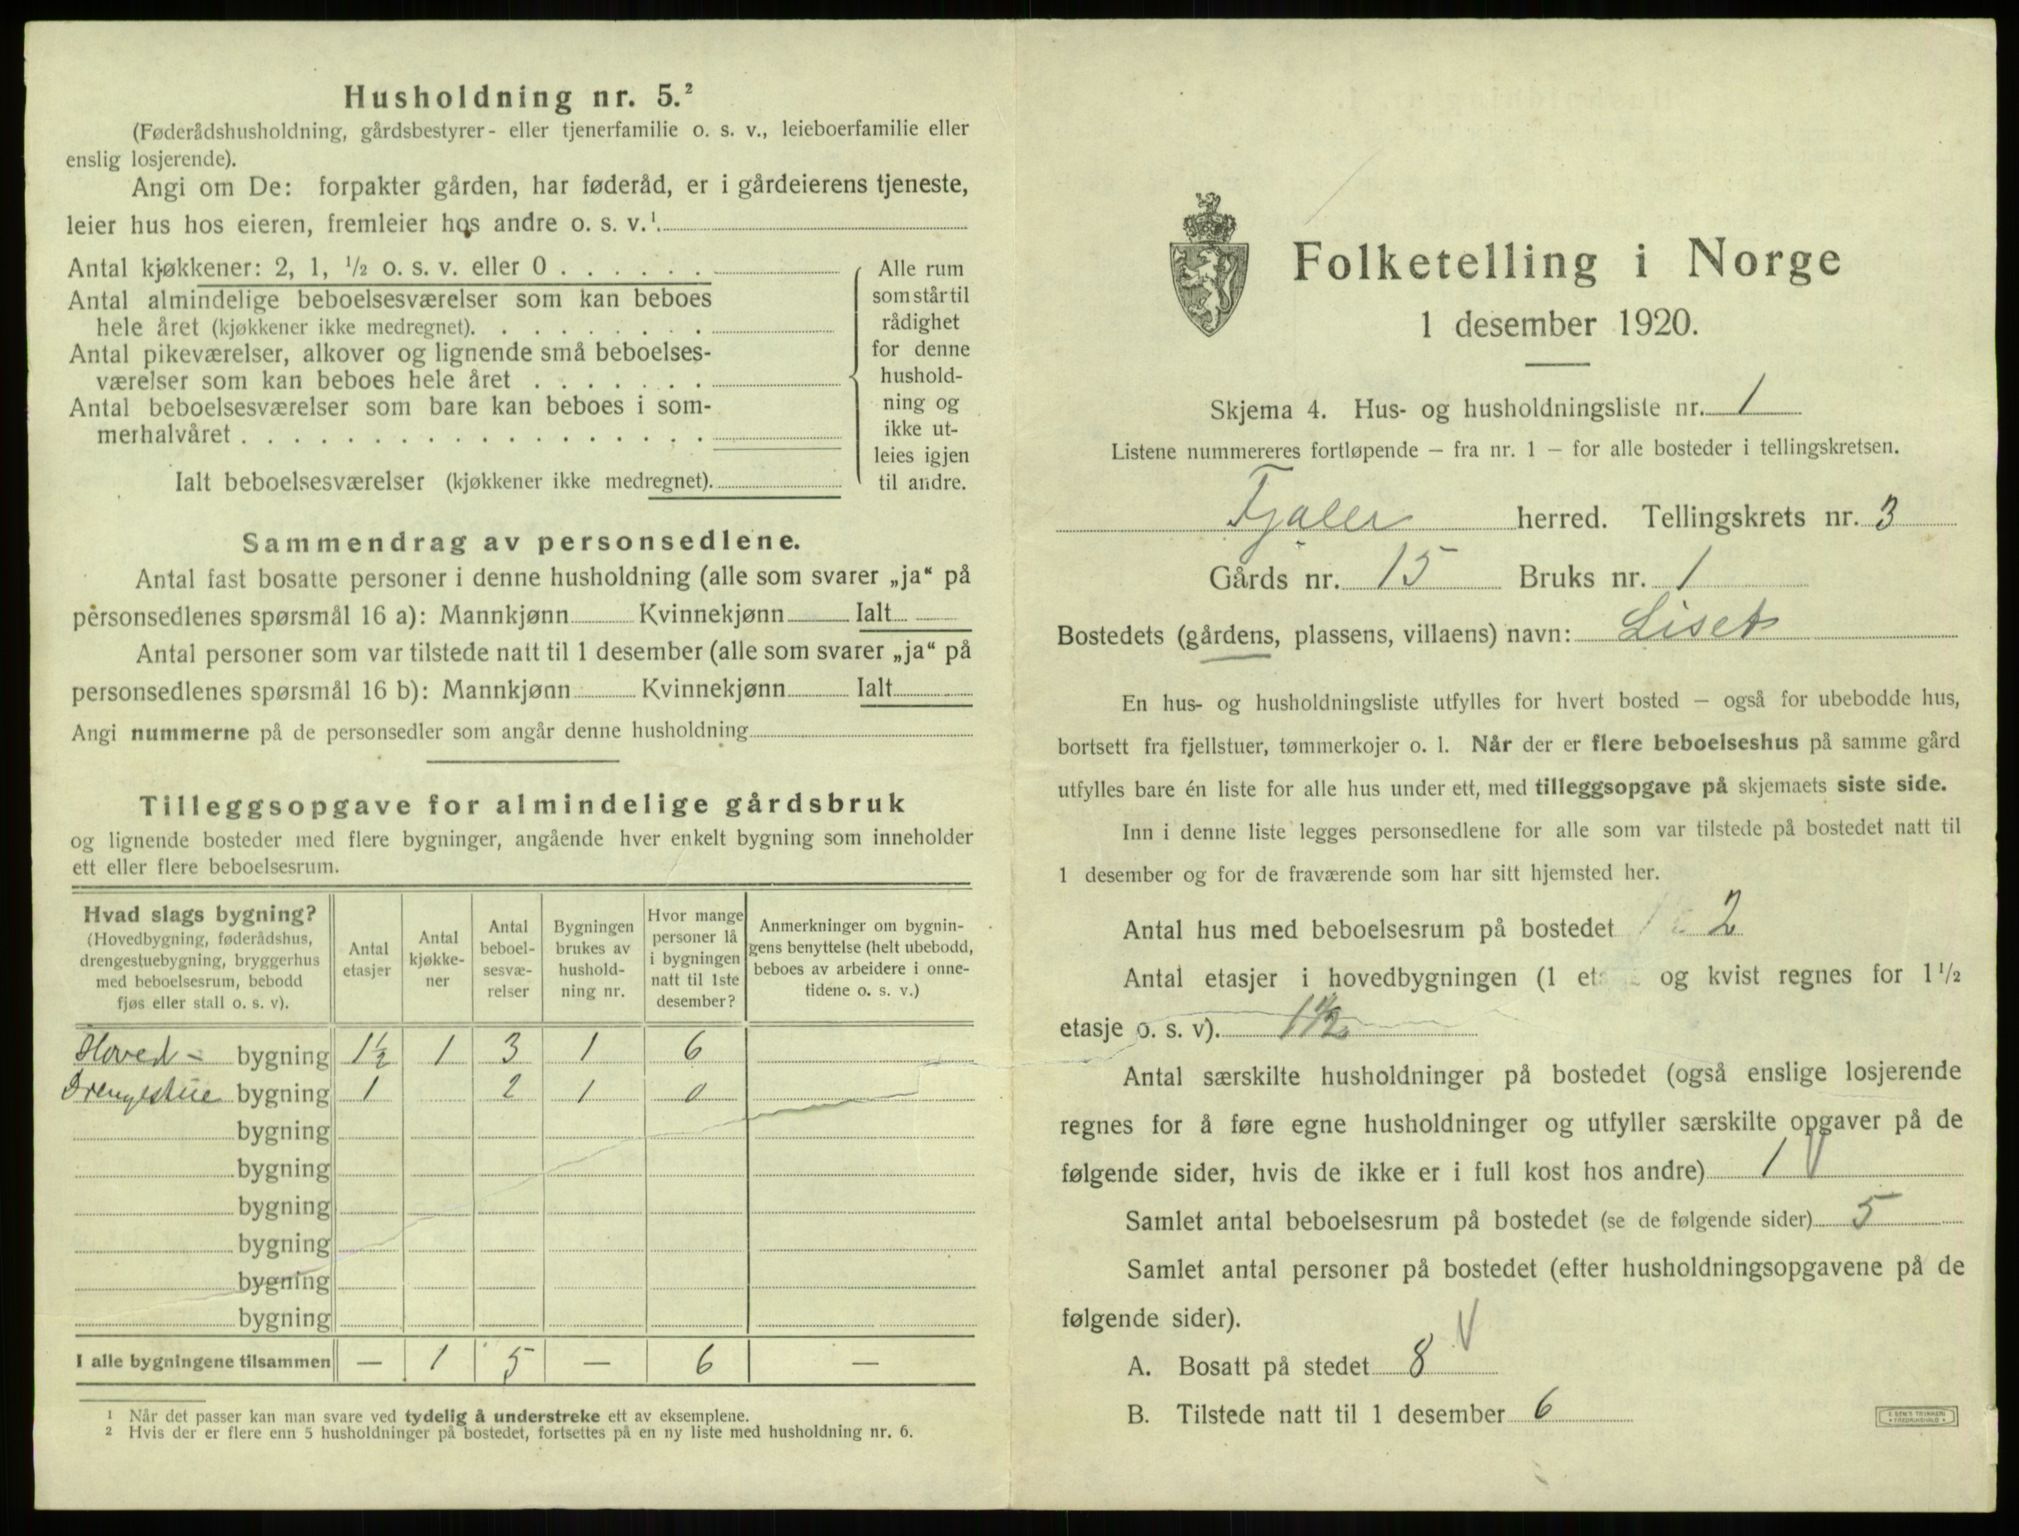 Husholdning nr. 5.²
(Føderådshusholdning, gårdsbestyrer- eller tjenerfamilie o. s. v., leieboerfamilie eller
enslig losjerende).
Angi om De: forpakter gården, har føderåd, er i gårdeierens tjeneste,
leier hus hos eieren, fremleier hos andre o. s. v.¹
Antal kjøkkener: 2, 1, ½ o. s. v. eller 0 . . . . . .
Antal almindelige beboelsesværelser som kan beboes
hele året (kjøkkener ikke medregnet). . . . . . . . .
Antal pikeværelser, alkover og lignende små beboelses-
værelser som kan beboes hele året . . . . . . .
Antal beboelsesværelser som bare kan beboes i som-
merhalvåret . . . . . . . . . . . . . . . . . .
Ialt beboelsesværelser (kjøkkener ikke medregnet).
Alle rum
som står til
rådighet
for denne
hushold-
ning og
ikke ut-
leies igjen
til andre.
Sammendrag av personsedlene.
Antal fast bosatte personer i denne husholdning (alle som svarer „ja“ på
personsedlenes spørsmål 16 a): Mannkjønn Kvinnekjønn Ialt
Antal personer som var tilstede natt til 1 desember (alle som svarer „ja“ på
personsedlenes spørsmål 16 b): Mannkjønn Kvinnekjønn Ialt
Angi nummerne på de personsedler som angår denne husholdning
Tilleggsopgave for almindelige gårdsbruk
og lignende bosteder med flere bygninger, angående hver enkelt bygning som inneholder
ett eller flere beboelsesrum.
Hvad slags bygning?
(Hovedbygning, føderådshus,
drengestuebygning, bryggerhus
med beboelsesrum, bebodd
fjøs eller stall o. s. v).
Antal
etasjer
Antal
kjøkke-
ner
Antal
beboel-
sesvæ-
relser
Bygningen
brukes av
hushold-
ning nr.
Hvor mange
personer lå
i bygningen
natt til 1ste
desember?
Anmerkninger om bygnin-
gens benyttelse (helt ubebodd,
beboes av arbeidere i onne-
tidene o. s. v.)
Hoved- bygning 1½ 1 3 1 6
Drengestue bygning 1 2 1 0
bygning
bygning
bygning
bygning
bygning
bygning
I alle bygningene tilsammen — 1 5 — 6 —
¹ Når det passer kan man svare ved tydelig å understreke ett av eksemplene.
² Hvis der er flere enn 5 husholdninger på bostedet, fortsettes på en ny liste med husholdning nr. 6.
Folketelling i Norge
1 desember 1920.
Skjema 4. Hus- og husholdningsliste nr. 1
Listene nummereres fortløpende – fra nr. 1 – for alle bosteder i tellingskretsen.
Fjaler herred. Tellingskrets nr. 3
Gårds nr. 15 Bruks nr. 1
Bostedets (gårdens, plassens, villaens) navn: Liset
En hus- og husholdningsliste utfylles for hvert bosted – også for ubebodde hus,
bortsett fra fjellstuer, tømmerkojer o. l. Når der er flere beboelseshus på samme gård
utfylles bare én liste for alle hus under ett, med tilleggsopgave på skjemaets siste side.
Inn i denne liste legges personsedlene for alle som var tilstede på bostedet natt til
1 desember og for de fraværende som har sitt hjemsted her.
Antal hus med beboelsesrum på bostedet 2
Antal etasjer i hovedbygningen (1 et og kvist regnes for 1½
etasje o. s. v). 1½
Antal særskilte husholdninger på bostedet (også enslige losjerende
regnes for å føre egne husholdninger og utfyller særskilte opgaver på de
følgende sider, hvis de ikke er i full kost hos andre) 1 V
Samlet antal beboelsesrum på bostedet (se de følgende sider) 5
Samlet antal personer på bostedet (efter husholdningsopgavene på de
følgende sider). V
A. Bosatt på stedet 8
B. Tilstede natt til 1 desember 6